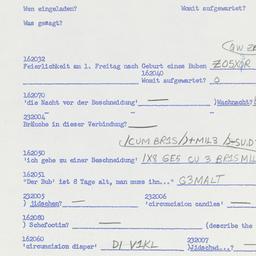 Wen eingeladen? Womit aufgewartet?
Was gesagt?
162032
Feierlichkeit am 1. Freitag nach Geburt eines Buben ZOSXQR
162040
Womit aufgewartet? O
162070
'die Nacht vor der Beschneidung' — )Wachnacht?
232004
Bräuche in dieser Verbindung? —
162050
'ich gehe zu einer Beschneidung' 1X8 GES CU 3 BRIS MIL
162051
"Der Bub' ist 8 Tage alt, man muss ihn..." G3MALT
232005 232006
) jidschen? — 'circumcision candles' —
162080
) Schefoctim? — (describe the
162060 232007
'circumcision diaper' DI V1KL )Jüdschwi...?